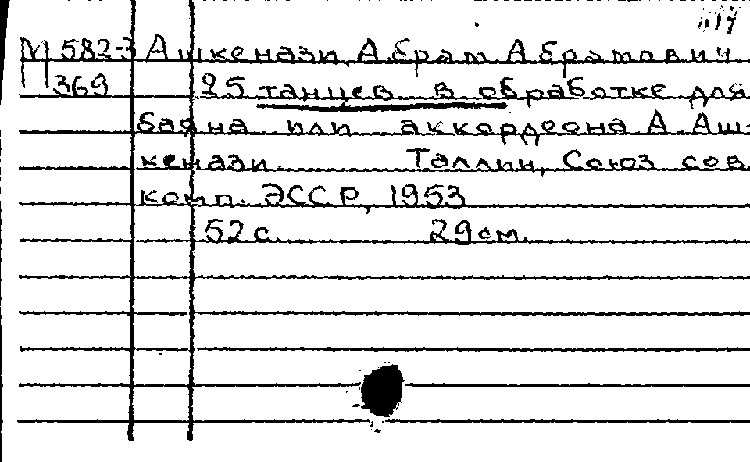 М 582-3 Ашкенази, Абрам Абрамович
369 25 танцев в обработке для
баяна или аккордеона А. Аш-
кенази. Таллин, Союз сов.
комп. ЭССР, 1953
52 с. 29 см.